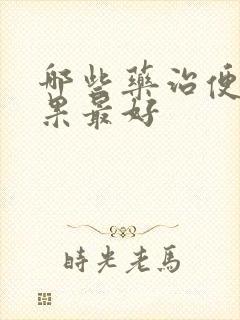 哪些药治便
果最好
時光老馬